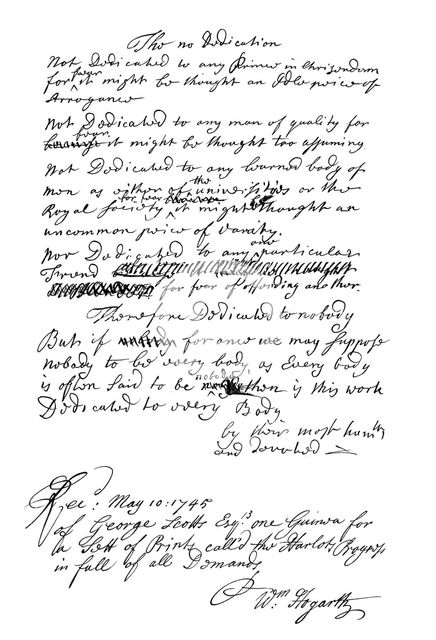 The no Dedication
Not Dedicated to any Prince in Christendom
for fear it might be thought an Idle peice of
Arrogance
Not Dedicated to any man of quality for
fear it might be thought too assuming
Not Dedicated to any learned body of
men as either of the universities or the
Royal Society for fear it might be thought an
uncommon peice of Vanity.
Nor Dedicated to any one particular
Friend
for fear of offending another.
Therefore Dedicated to nobody
But if for once we may suppose
nobody to be every body as Every body
is often said to be nobody, then is this work
Dedicated to every Body
by their most humble
and devoted
Rec:d May 10: 1745
of George Scotts Esqr. one Guinea for
a Sett of Prints call'd the Harlots Progress
in full of all Demands,
Wm Hogarth